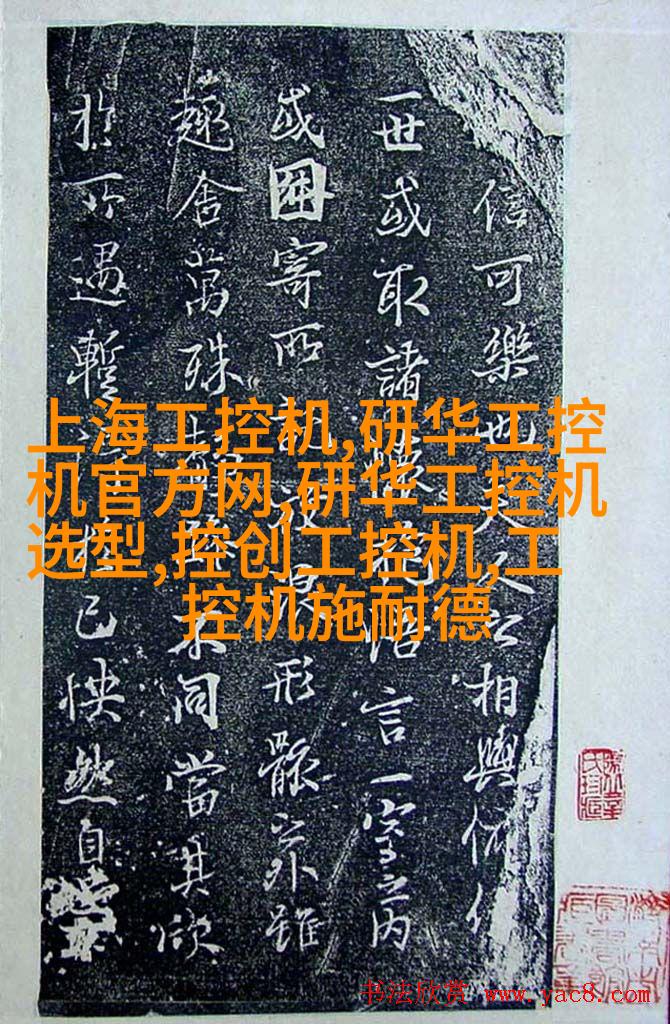 信可樂也夫人之相與俯仰
一世或取諸懷抱悟言一室之内
或因寄所託放浪形骸之外雖
趣舍萬殊靜躁不同當其欣
於所遇暫得於己快然自
上海工控机,研华工控
机官方网,研华工控机
选型,控创工控机,工
控机施耐德
书法欣赏 www.yac8.com